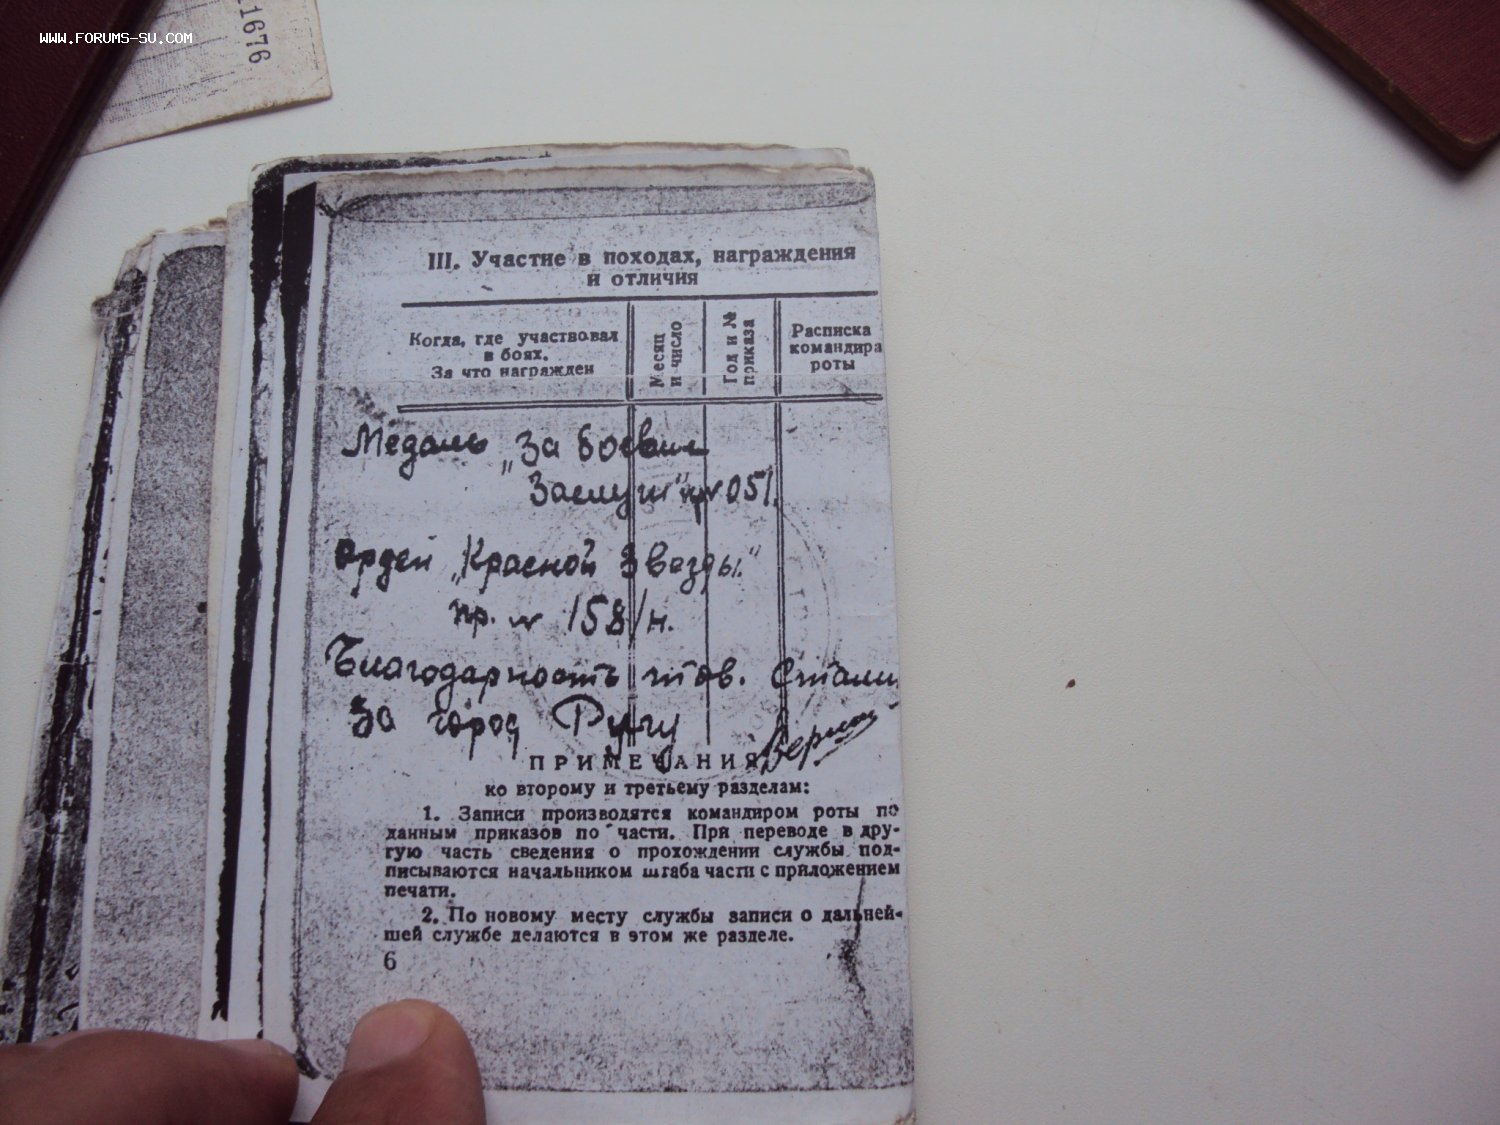 WWW.FORUMS-SU.COM
1676
III. Участие в походах, награждения
и отличия
Когда, где участвовал
в боях.
За что награжден
Месяц
и число
Год и №
приказа
Расписка
командира
роты
Медаль „За боевые
Заслуги" пр N 051.
Орден „Красной Звезды."
пр. N 158/н.
Благодарность тов. Стали
За город Ригу
ПРИМЕЧАНИЯ
ко второму и третьему разделам:
1. Записи производятся командиром роты по
данным приказов по части. При переводе в дру-
гую часть сведения о прохождении службы под-
писываются начальником штаба части с приложением
печати.
2. По новому месту службы записи о дальней-
шей службе делаются в этом же разделе.
6